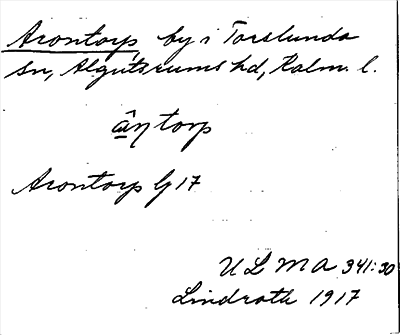 Arontorp by i Torslunda
sn, Algutsrums hd, Kalm. l.
âŋtorp
Arontorp Gj 17
ULMA 341:30
Lindroth 1917